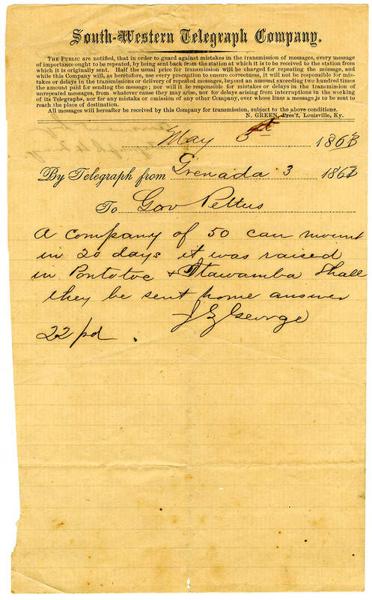 South-Western Telegraph Company.
THE PUBLIC are notified, that in order to guard against mistakes in the transmission of messages, every message
of importance ought to be repeated, by being sent back from the station at which it is to be received to the station from
which it is originally sent. Half the usual price for transmission will be charged for repeating the message, and
while this Company will, as heretofore, use every precaution to ensure correctness, it will not be responsible for mis-
takes or delays in the transmissions or delivery of repeated messages, beyond an amount exceeding two hundred times
the amount paid for sending the message; nor will it be responsible for mistakes or delays in the transmission of
unrepeated messages, from whatever cause they may arise, nor for delays arising from interruptions in the working
of its Telegraphs, nor for any mistake or omission of any other Company, over whose lines a message is to be sent to
reach the place of destination.
All messages will hereafter be received by this Company for transmission, subject to the above conditions.
N. GREEN, Pres't, Louisville, Ky.
May 3 1863
By Telegraph from Grenada 3 186
To Gov Pettus
A company of 50 can mount
in 20 days it was raised
in Pontotoc & Itawamba Shall
they be sent home answer
J Z George
22 pd.